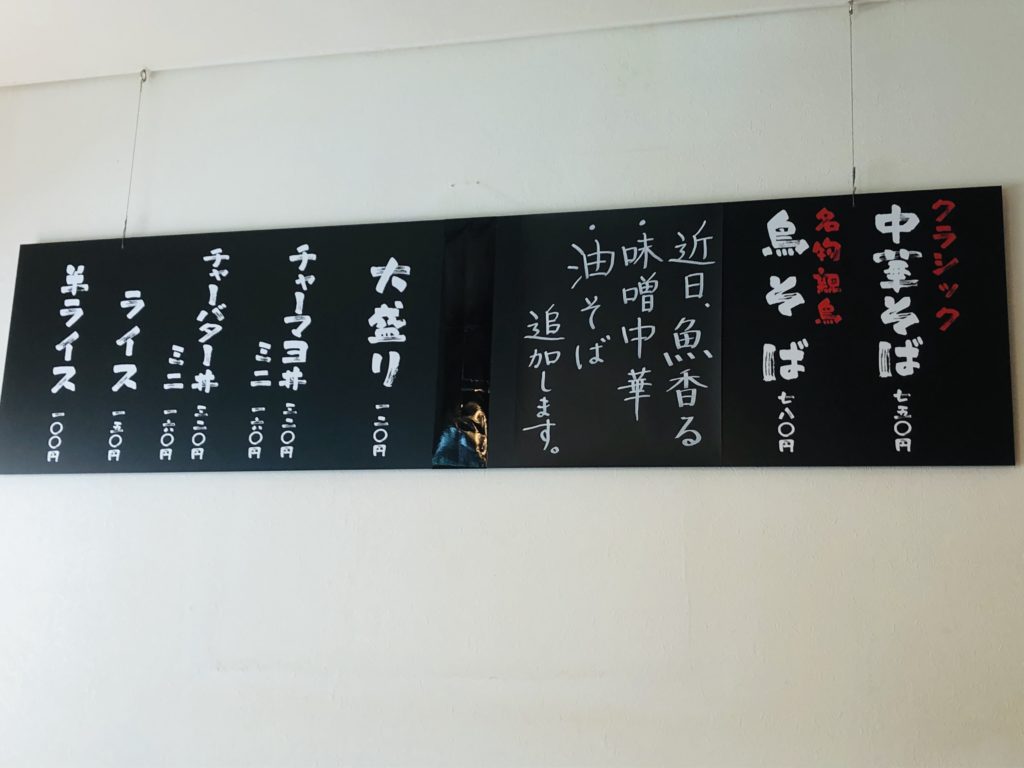 クラシック
中華そば 七五〇円
名物親鳥
鳥そば 七八〇円
近日、魚香る
・味噌中華
・油そば
追加します。
大盛り 一二〇円
チャーマヨ丼 三二〇円
ミニ 一六〇円
チャーバター丼 三二〇円
ミニ 一六〇円
ライス 一五〇円
半ライス 一〇〇円